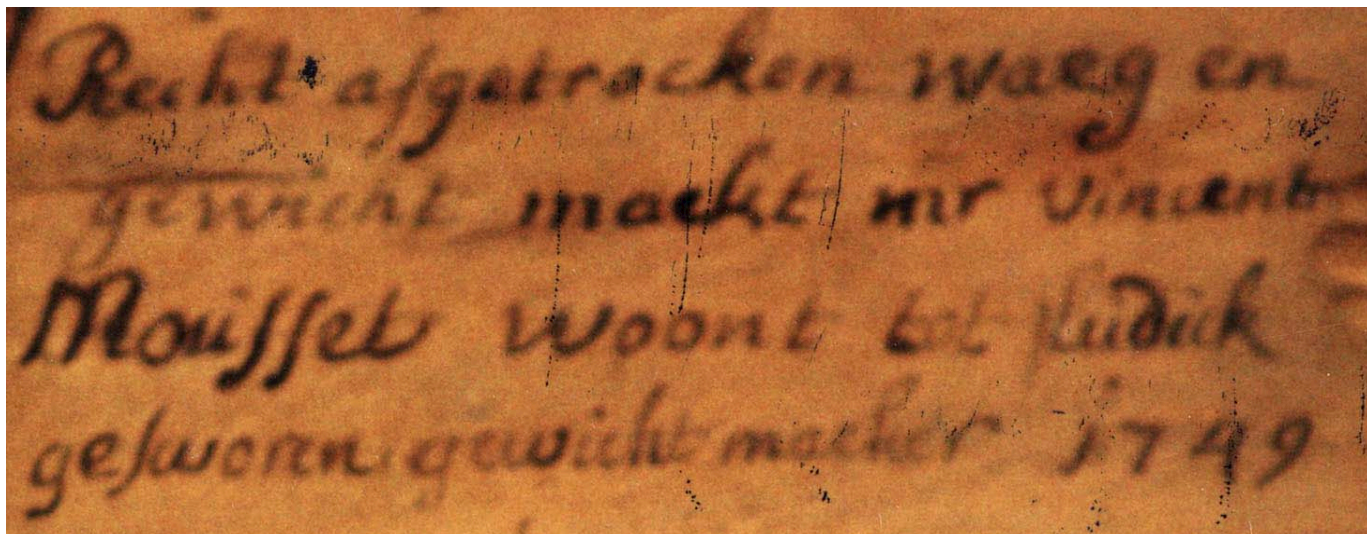 Recht afgetrocken waeg en
gewicht maekt mr Vincent
Mousset woont tot Ludick
gesworen gewicht macher 1749